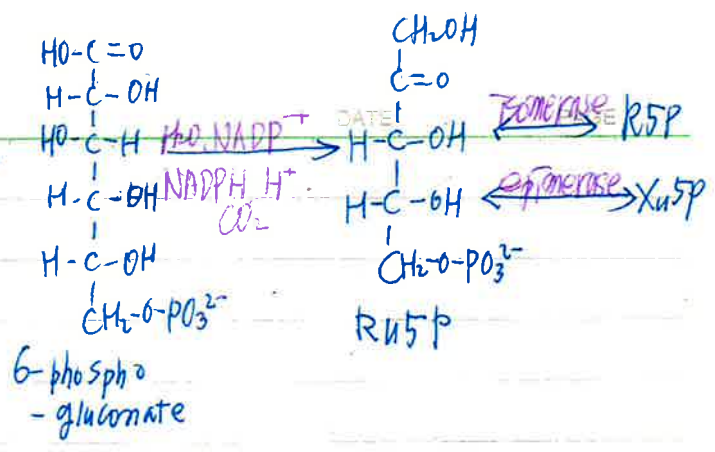 HO-C=O
H-C-OH
HO-C-H
H-C-OH
H-C-OH
CH₂-O-PO₃²⁻
6-phospho
-gluconate
H₂O, NADP⁺
NADPH H⁺
CO₂
CH₂OH
C=O
H-C-OH
H-C-OH
CH₂-O-PO₃²⁻
Ru5P
DATE
isomerase
R5P
epimerase
Xu5P